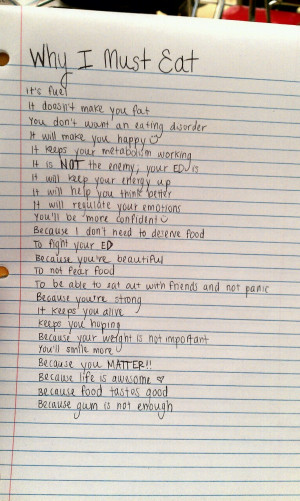 Why I Must Eat
It's fuel
It doesn't make you fat
You don't want an eating disorder
It will make you happy
It keeps your metabolism working
It is NOT the enemy, your ED is
It will keep your energy up
It will help you think better
It will regulate your emotions
You'll be more confident
Because I don't need to deserve food
To fight your ED
Because you're beautiful
To not fear food
To be able to eat out with friends and not panic
Because you're strong
It keeps you alive
Keeps you hoping
Because your weight is not important
You'll smile more
Because you MATTER!!
Because life is awesome ♡
Because food tastes good
Because gum is not enough